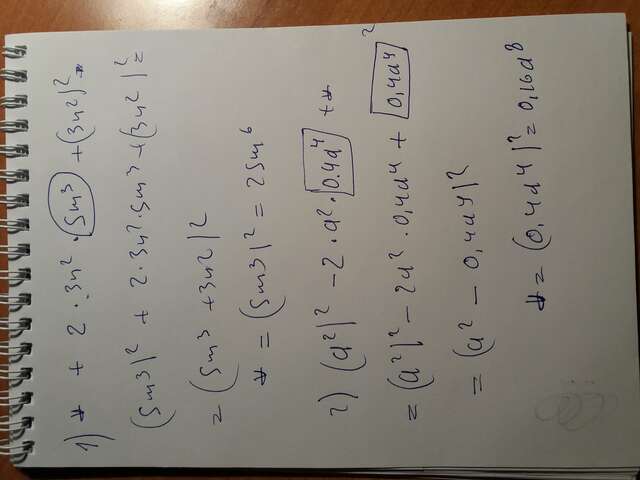 1) * + 2 · 3n² · 5m³ + (3n²)² =
(5m³)² + 2·3n²·5m³ + (3n²)² =
= (5m³ + 3n2)2
* = (5m3)² = 25m⁶
2) (a²)² - 2 · a² · 0.4d⁴ + *
= (a²)² - 2a² · 0,4d⁴ + 0,4d⁴ ²
= (a² - 0,4d4)²
* = (0,4d⁴)² = 0,16d⁸